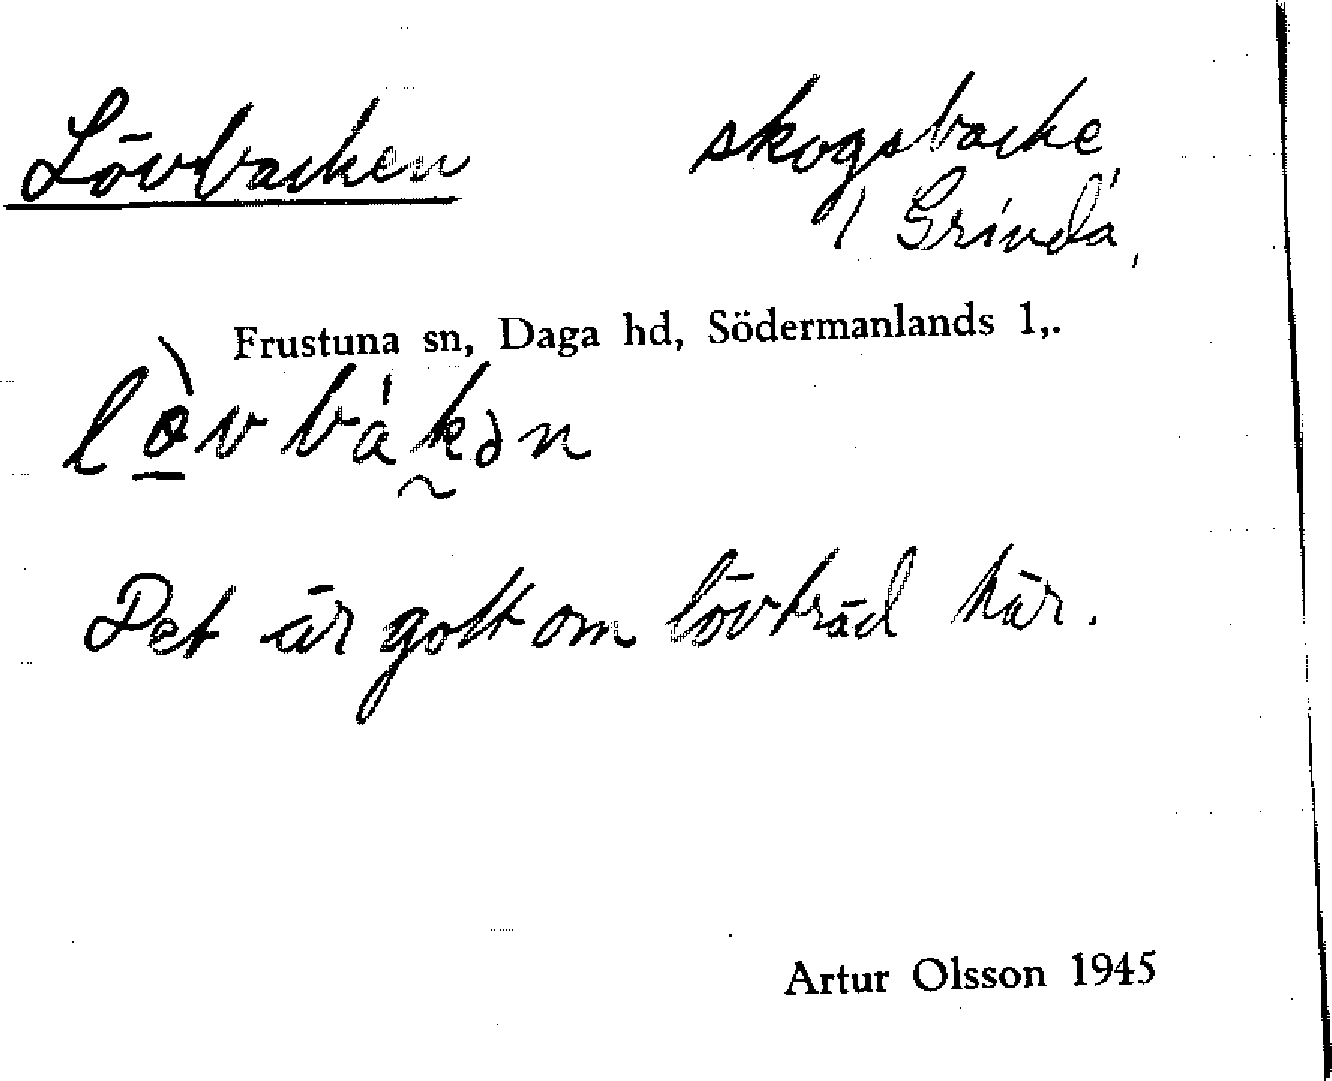 Lövbacken
skogsbacke
/ Grinda,
Frustuna sn, Daga hd, Södermanlands l,.
lø̀vbákən
Det är gott om lövträd här.
Artur Olsson 1945